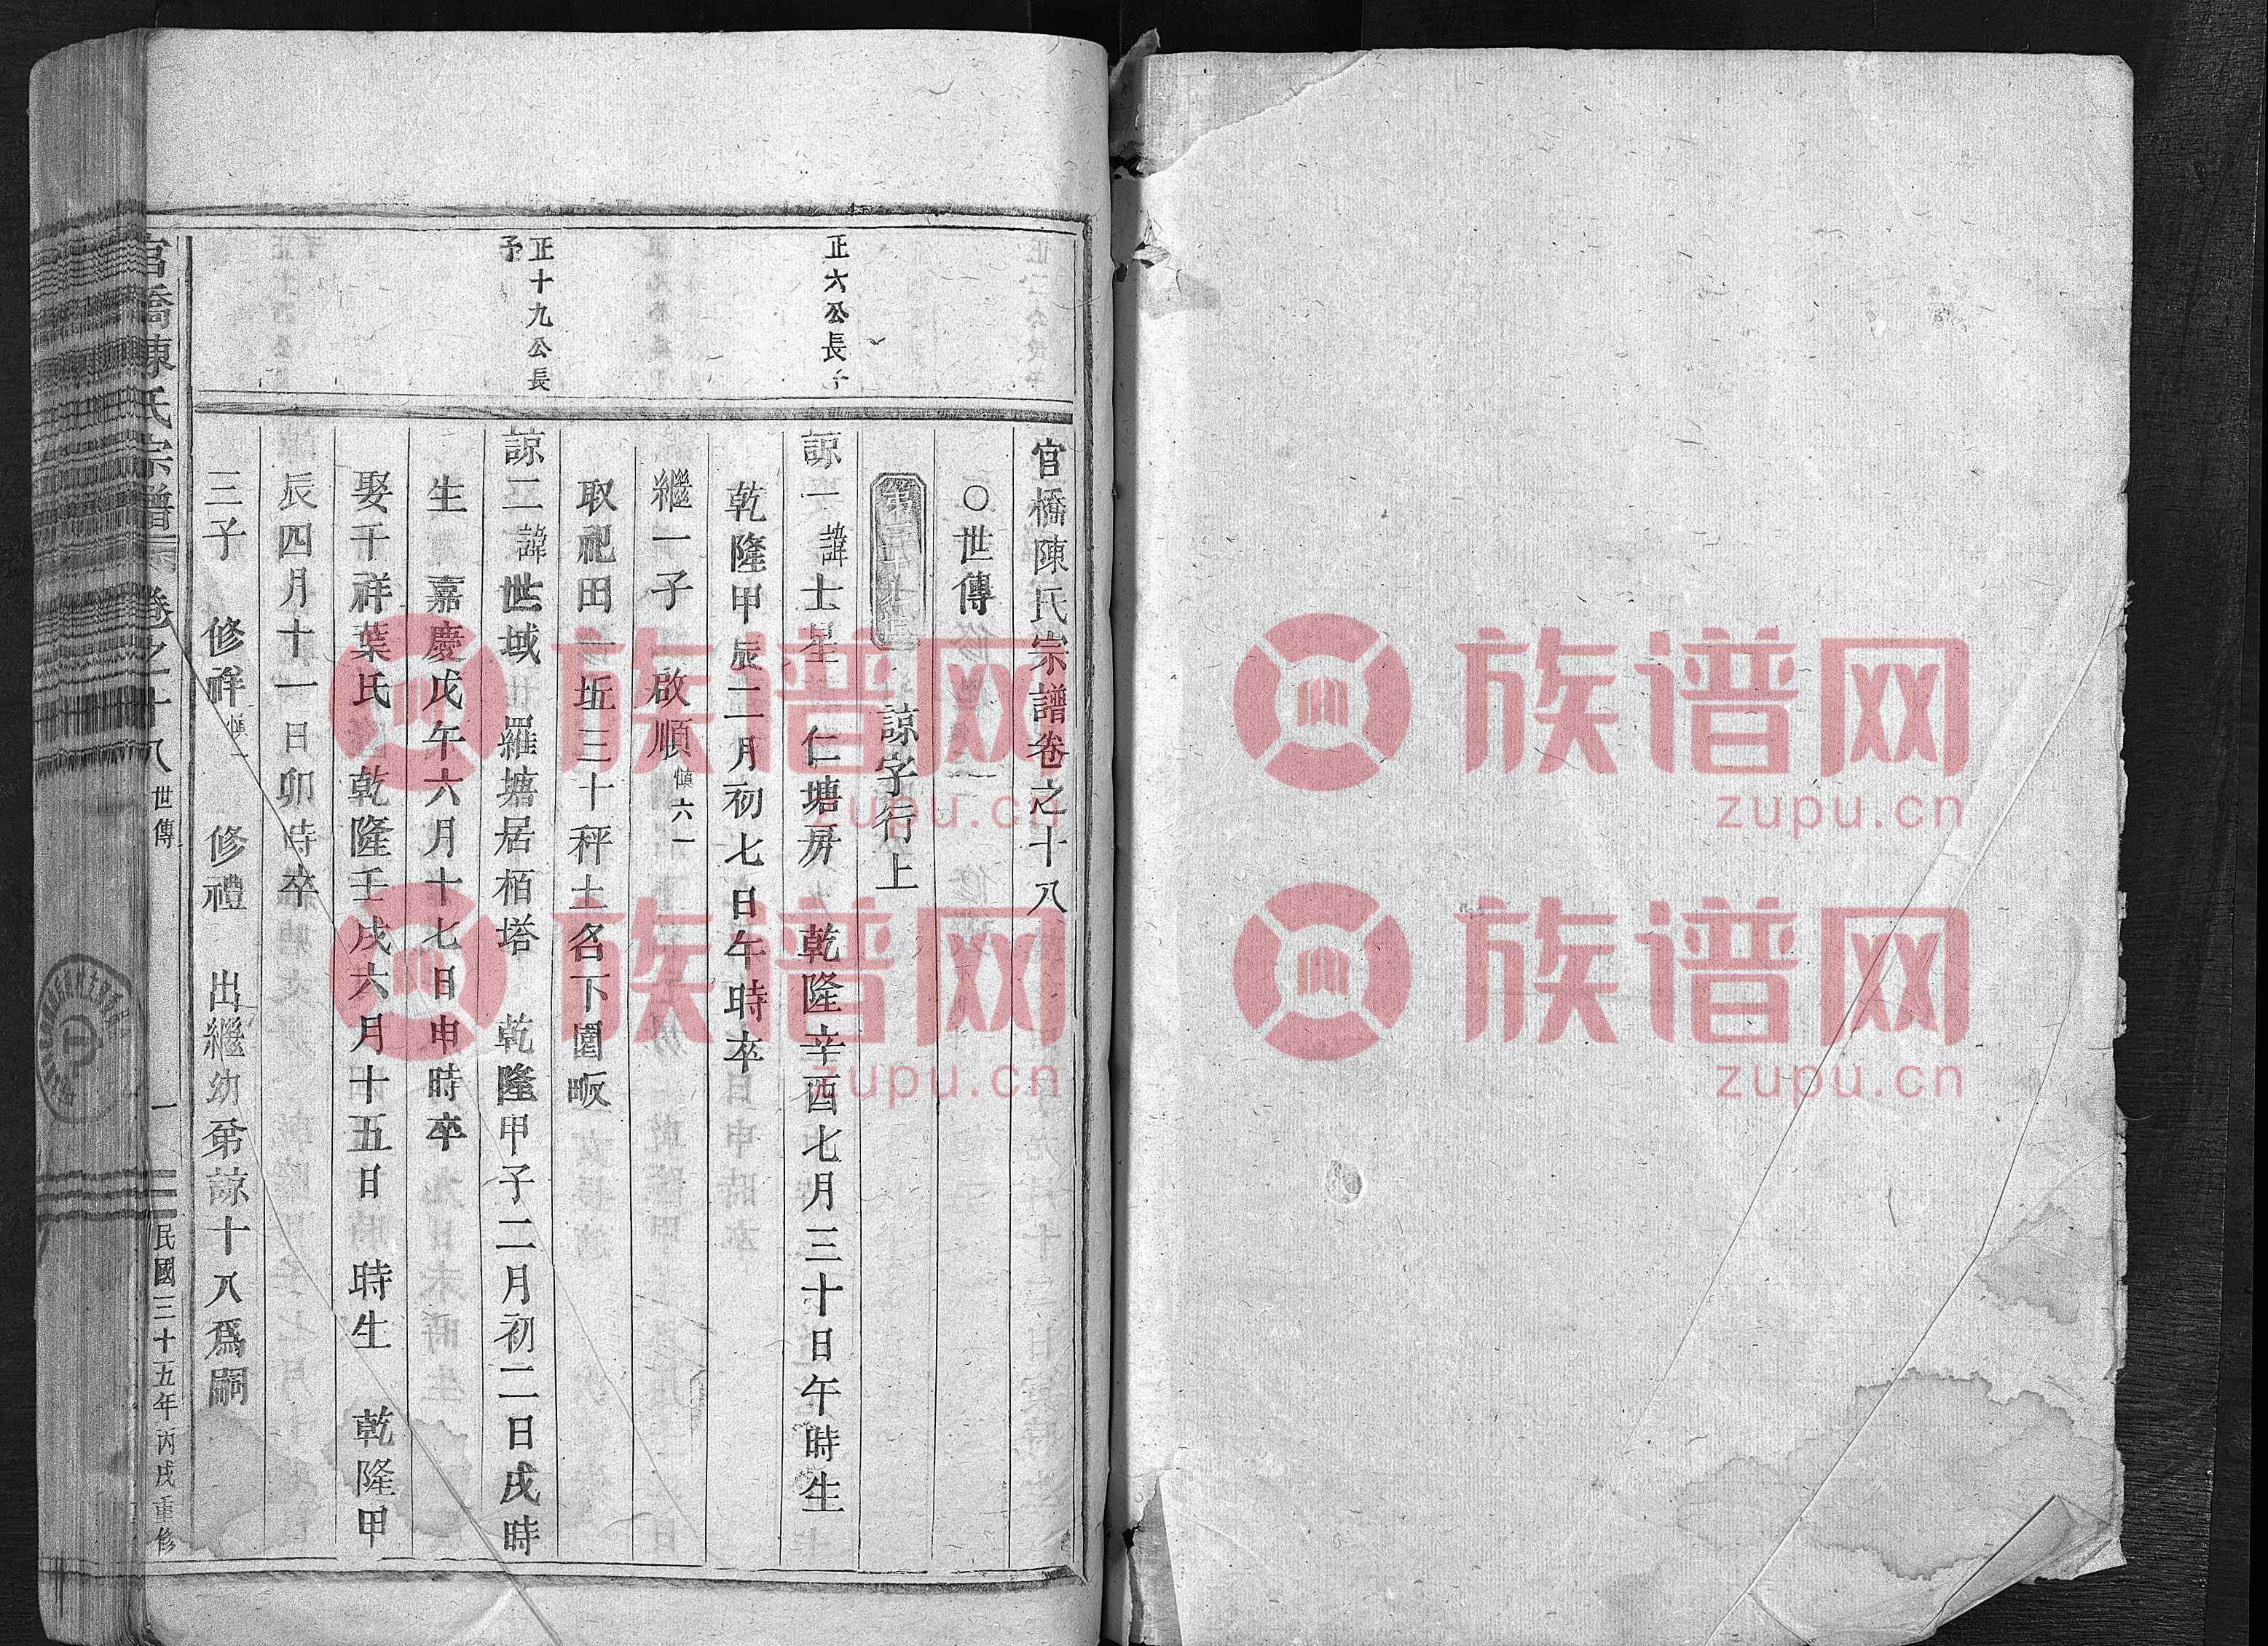 官橋陳氏宗譜卷之十八
○世傳
諒字行上
正六公長子
諒一 諱士星 仁塘屏 乾隆辛酉七月三十日午時生
乾隆甲辰二月初七日午時卒
繼一子 啟順 慎六一
取祀田一坵三十秤土名下園畈
正十九公長子
諒二 諱世域 羅塘居栢塔 乾隆甲子二月初二日戌時
生 嘉慶戊午六月十七日申時卒
娶千祥葉氏 乾隆壬戌六月十五日 時生 乾隆甲
辰四月十一日卯時卒
三子 修祥 慎一 修禮 出繼幼弟諒十八爲嗣
官橋陳氏宗譜 卷之十八 世傳 一 民國三十五年丙戌重修
族谱网
zupu.cn
族谱网
zupu.cn
族谱网
zupu.cn
族谱网
zupu.cn